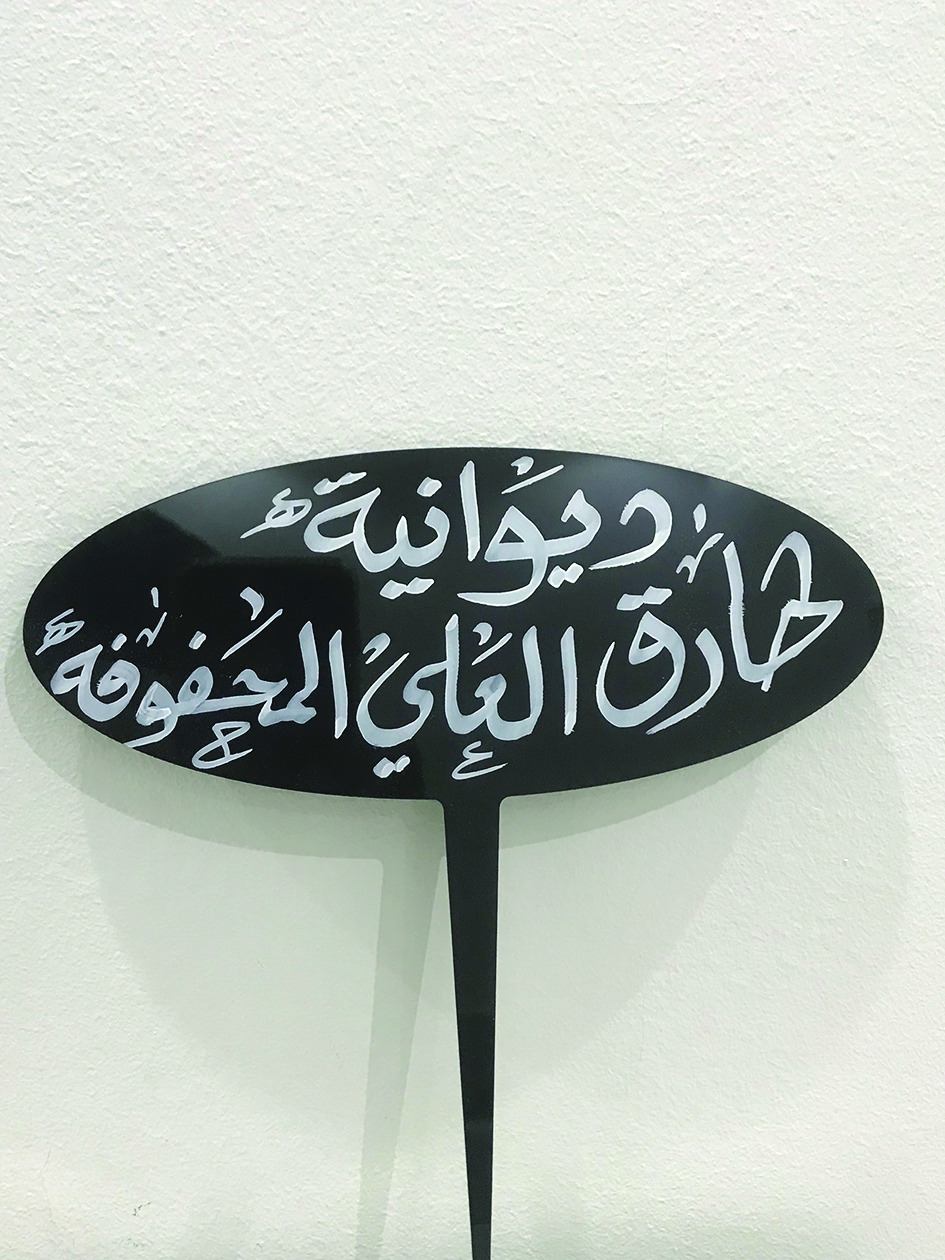 ديوانية
طارق العلي المحفوفة